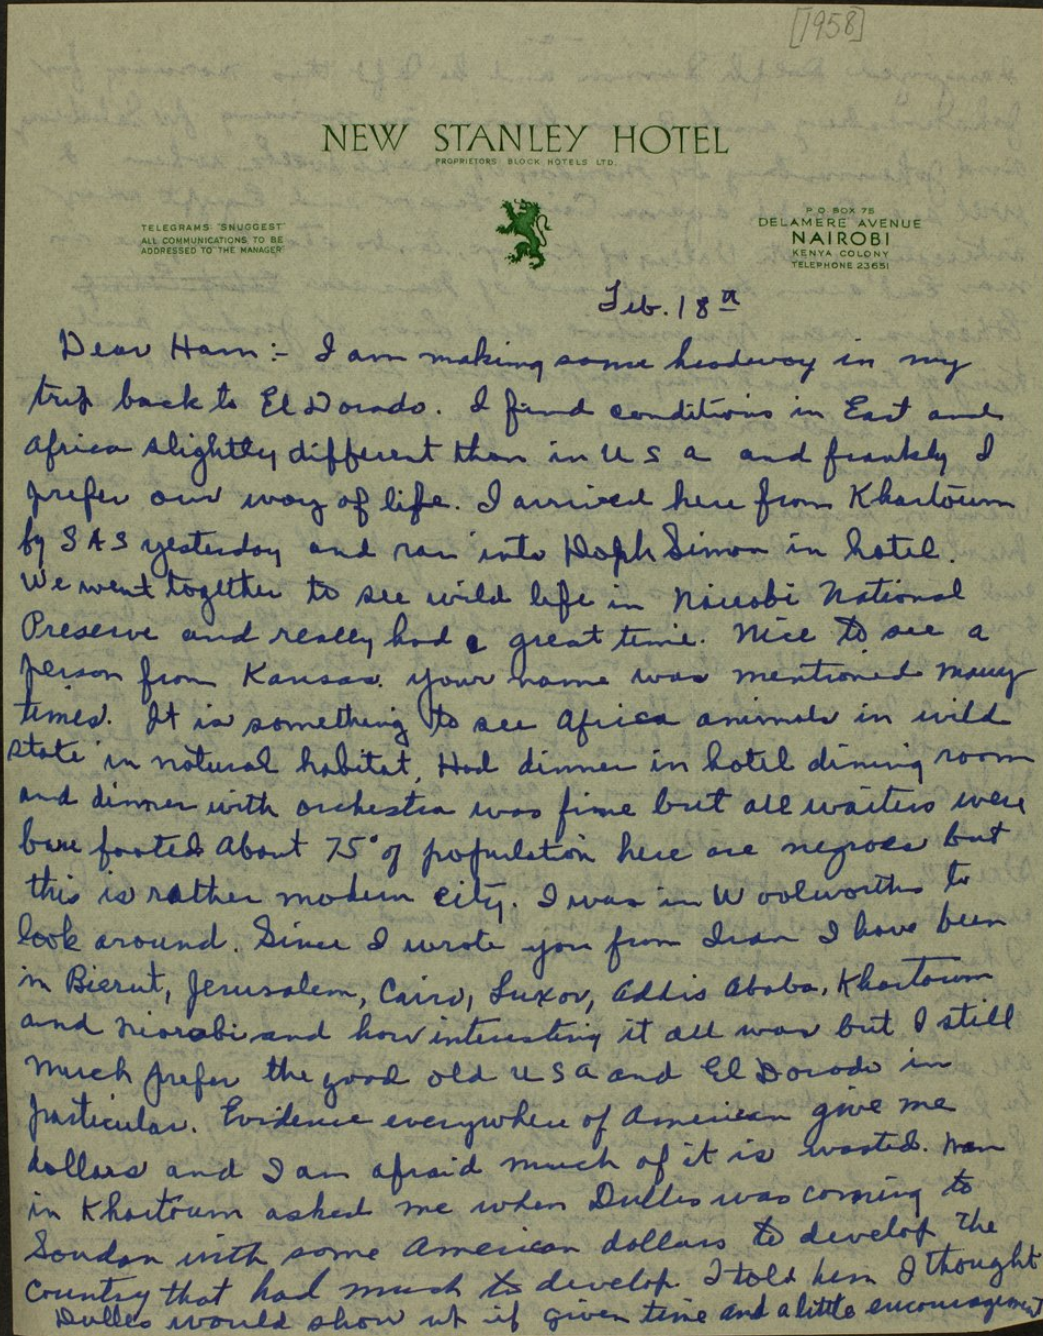 [1958]
NEW STANLEY HOTEL
PROPRIETORS BLOCK HOTELS LTD.
TELEGRAMS "SNUGGEST"
ALL COMMUNICATIONS TO BE
ADDRESSED TO THE MANAGER
P.O. BOX 75
DELAMERE AVENUE
NAIROBI
KENYA COLONY
TELEPHONE 23651
Feb. 18th
Dear Ham:- I am making some headway in my
trip back to El Dorado. I find conditions in East and
Africa slightly different than in U S A and frankly I
prefer our way of life. I arrived here from Khartoum
by SAS yesterday and ran into Dolph Simon in hotel.
We went together to see wild life in Nairobi National
Preserve and really had a great time. Nice to see a
person from Kansas. Your name was mentioned many
times. It is something to see Africa animals in wild
state in natural habitat. Had dinner in hotel dining room
and dinner with orchestra was fine but all waiters were
bare footed. About 75% of population here are negroes but
this is rather modern city. I was in Woolworths to
look around. Since I wrote you from Iran I have been
in Bierut, Jerusalem, Cairo, Luxor, Addis Ababa, Khartoum
and Niorabi and how interesting it all was but I still
much prefer the good old U S A and El Dorado in
particular. Evidence everywhere of American give me
dollars and I am afraid much of it is wasted. Man
in Khartoum asked me when Dulles was coming to
Soudan with some American dollars to develop the
country that had much to develop. I told him I thought
Dulles would show up if given time and a little encouragement